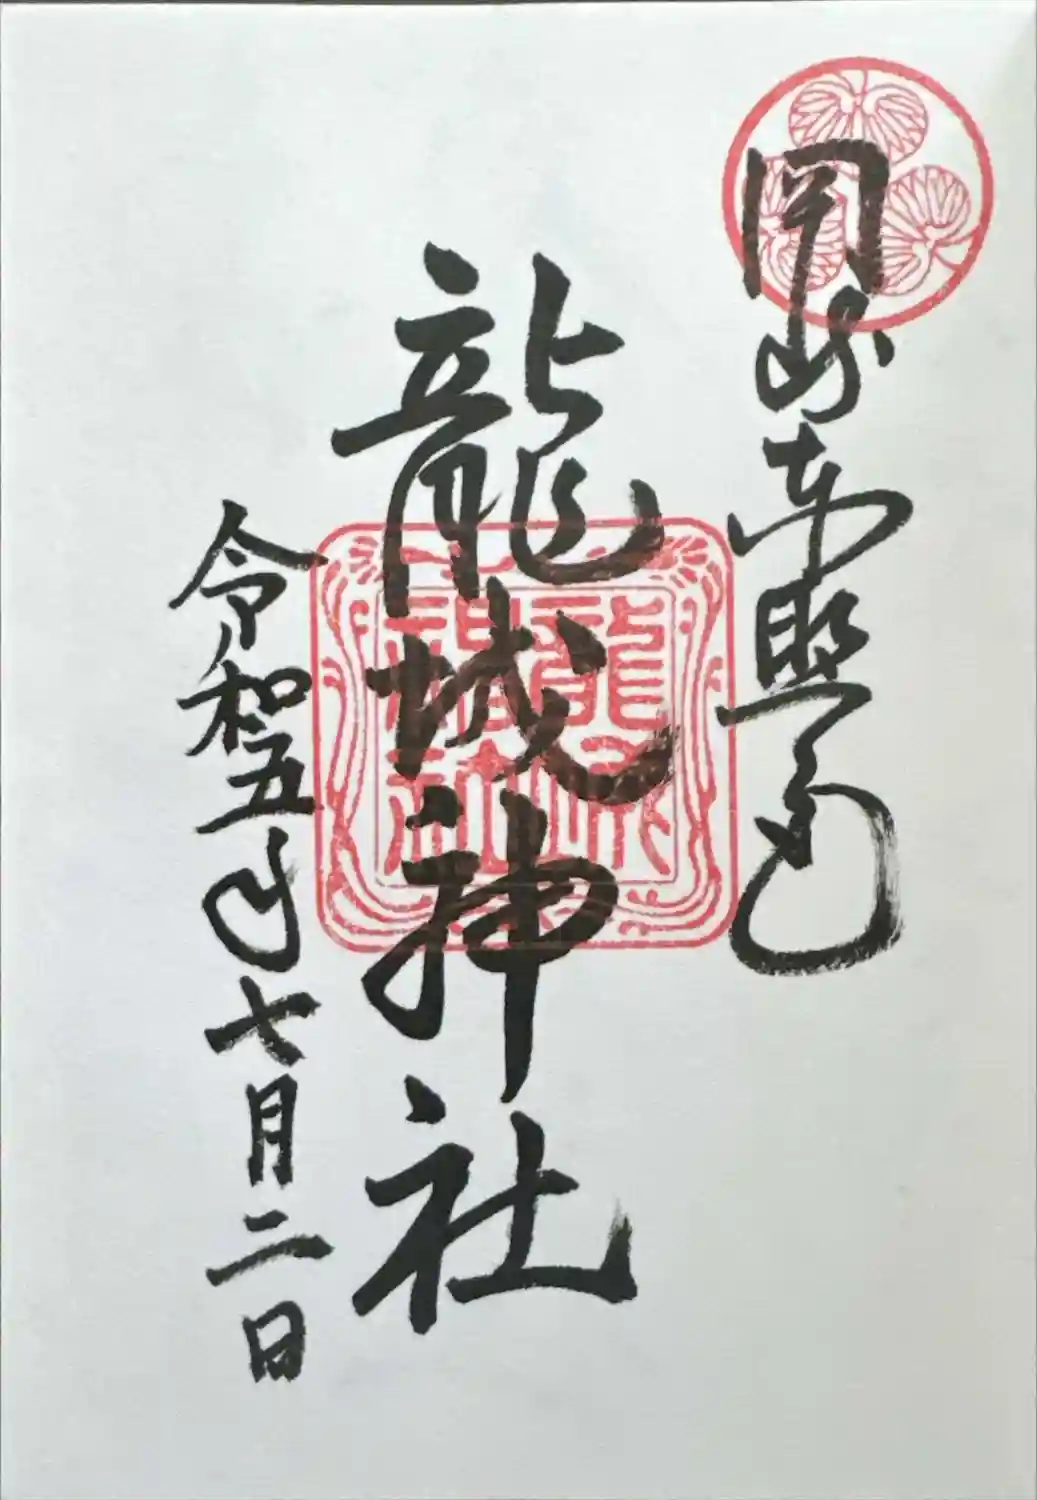 岡崎東照宮
龍城神社
令和五年七月二日
龍城神社